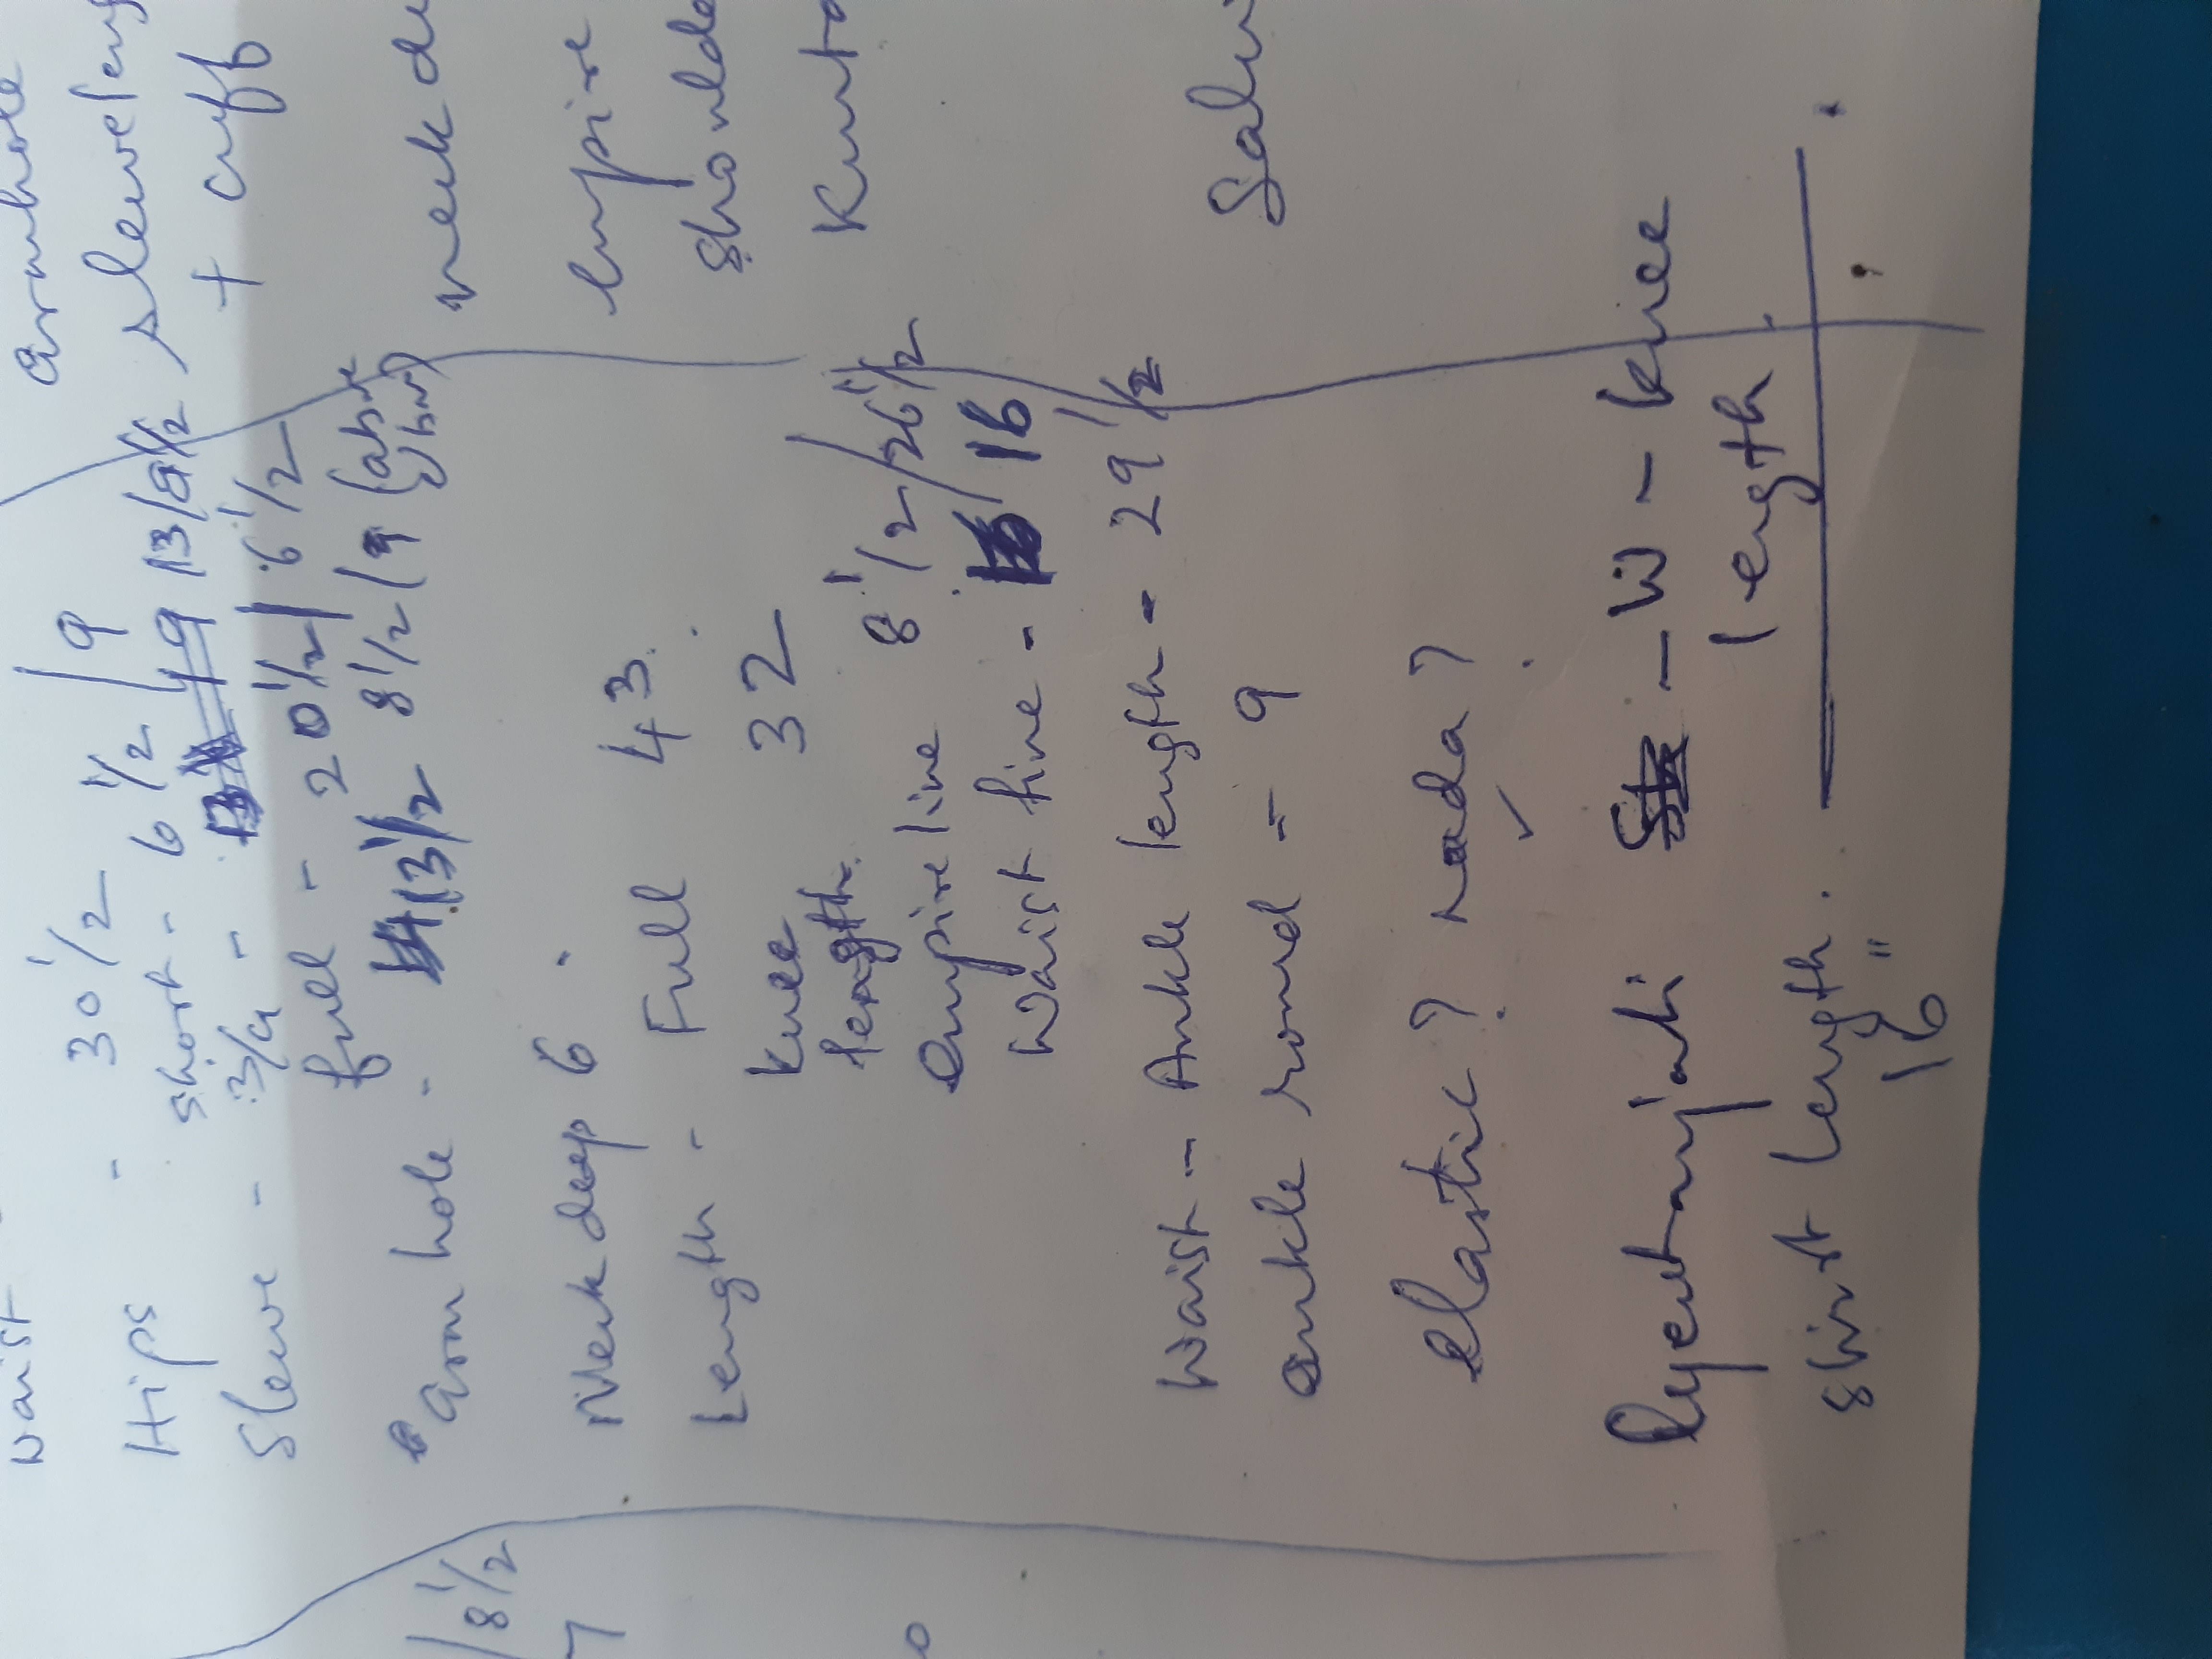 waist
Hips - 30 1/2
Slewe - short - 6 1/2 / 9
3/4 - 13 / 9 1/2
full - 20 1/2 / 6 1/2
Armhole - 13 1/2 8 1/2 / 9 (above
elbow)
Neck deep 6
Length - Full 43
knee 32
length
empire line 8 1/2 / 26 1/2
Waist line - 16
Waist - Ankle length - 29 1/2
ankle round - 9
elastic? nada?
✓
- W - knee
length
shirt length.
16"
/ 8 1/2
7
0
Armhole
sleweleng
+ cuff
neck de
empire
shoulde
Kurta
Salw